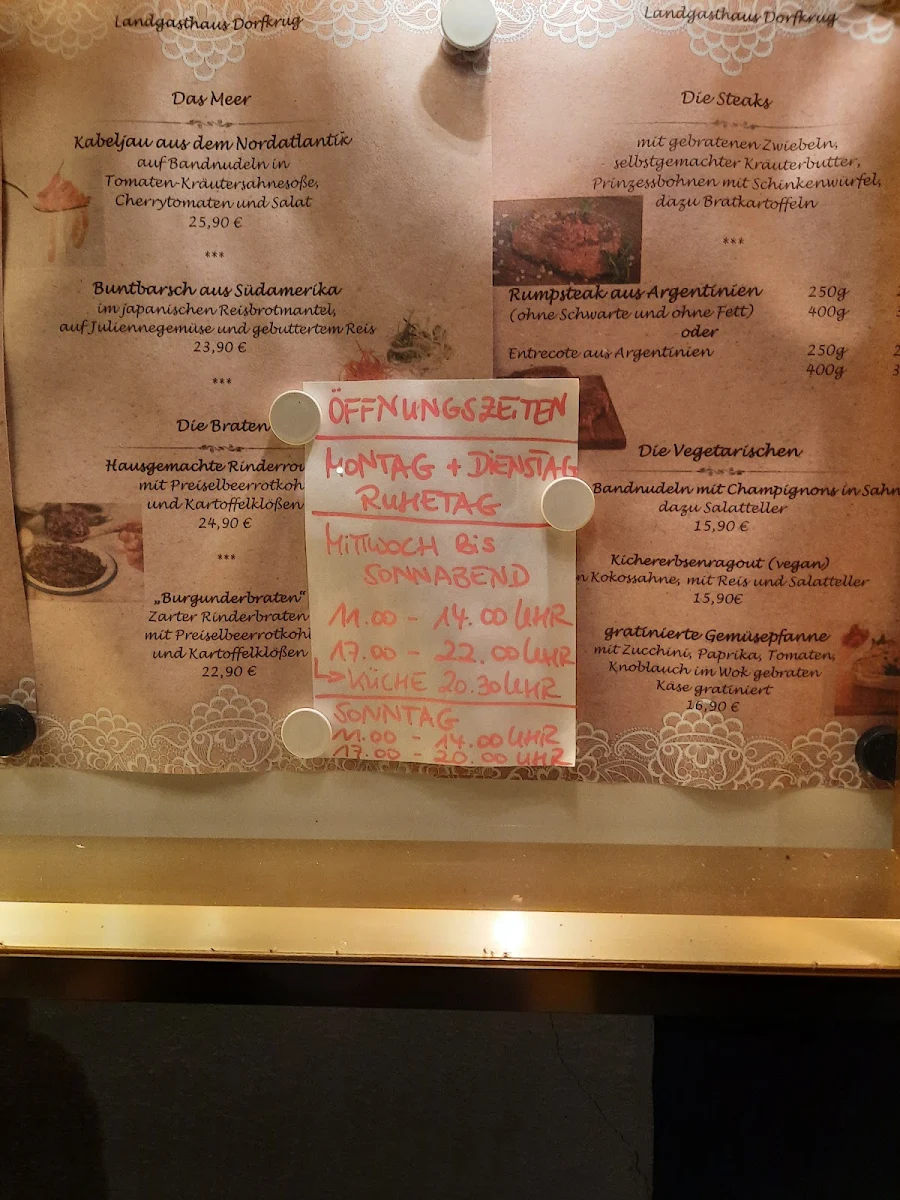 Landgasthaus Dorfkrug
Das Meer
Kabeljau aus dem Nordatlantik
auf Bandnudeln in
Tomaten-Kräutersahnesoße,
Cherrytomaten und Salat
25,90 €
***
Buntbarsch aus Südamerika
im japanischen Reisbrotmantel,
auf Juliennegemüse und gebuttertem Reis
23,90 €
***
Die Braten
Hausgemachte
mit Preiselbeerrotkoh
und Kartoffelklößen
24,90 €
***
„Burgunderbraten“
Zarter Rinderbraten
mit Preiselbeerrotkohl
und Kartoffelklößen
22,90 €
ÖFFNUNGSZEITEN
MONTAG + DIENSTAG
RUHETAG
MITTWOCH BIS
SONNABEND
11.00 - 14.00 UHR
17.00 - 22.00 UHR
KÜCHE 20.30 UHR
SONNTAG
11.00 - 14.00 UHR
17.00 - 20.00 UHR
Landgasthaus Dorfkrug
Die Steaks
mit gebratenen Zwiebeln,
selbstgemachter Kräuterbutter,
Prinzessbohnen mit Schinkenwürfel,
dazu Bratkartoffeln
***
Rumpsteak aus Argentinien 250g
(ohne Schwarte und ohne Fett) 400g
oder
Entrecote aus Argentinien 250g
400g
Die Vegetarischen
Bandnudeln mit Champignons in Sahn
dazu Salatteller
15,90 €
Kichererbsenragout (vegan)
n Kokossahne, mit Reis und Salatteller
15,90€
gratinierte Gemüsepfanne
mit Zucchini, Paprika, Tomaten,
Knoblauch im Wok gebraten
Käse gratiniert
16,90 €